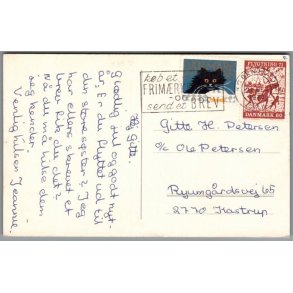 Hej Gitte.
Glædelig jul og godt nyt-
år. Er du flyttet ud til
din store søster? Jeg
har ellers skrevet et
brev fik du det?
Nå du må hilse dem
jeg kender.
Venlig hilsen Jeannie.
køb et
FRIMÆR
send et BREV
FLYGTNING 71
DANMARK 60
Gitte H. Petersen
c/o Ole Petersen
Ryumgårdsvej
2770 Kastrup